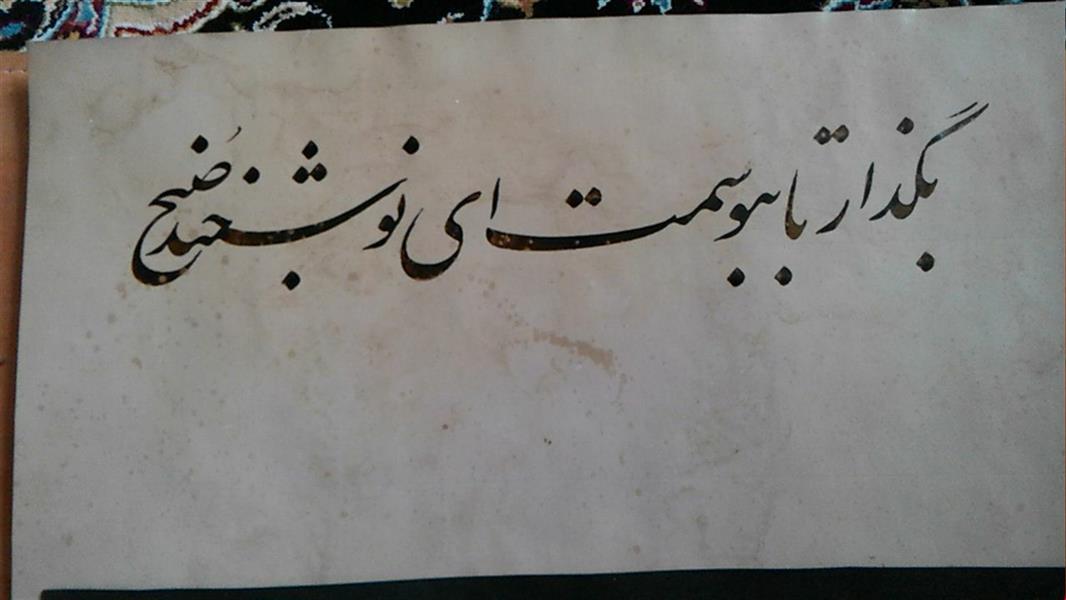 بگذار تا ببوسمت ای نوشخند صُبح